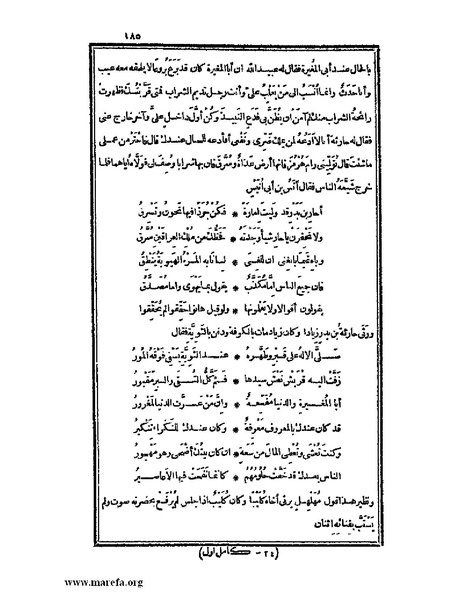 ١٨٥
بالحال عند أبى المغيرة فقال له عبيد الله ان أبا المغيرة كان قد بَرَعَ بروعًا لا يلحقه معه عيب
وأنا حَدَثٌ وانما أُنْسَبُ الى مَنْ يغلب علىّ وأنت رجل نديم الشراب فمتى قرّبتُكَ فظهرت
رائحة الشراب منك لم آمن أن يُظَنَّ بى فدَعِ النبيذ وكُنْ أوّل داخل علىَّ وآخر خارج عنى
فقال له حارثة أنا لا أدَعُهُ لمن يملك ضَرّى ونَفْعِى أفأدعه للحال عندك قال فاخْتَرْ من عملى
ماشئت قال تُوَلِّينى رامَ هُرْمُزَ فانها أرض عذاة وسُرَّقَ فان بها شرابا وُصِفَ لى فولاه اياها فلما
خرج شيّعه الناس فقال أنَسُ بن أبى أُنَيْسٍ
أحار بن بدر قد وليت امارة * فكن جُرَذًا فيها تخون وتسرق
ولا تحقرن يا حار شيأ وجدته * فحظك من ملك العراقين سُرَّقُ
وباه تميما بالغنى ان للغنى * لسانا به المرء الهيوبة ينطق
فان جميع الناس امّا مكذّب * يقول بما يهوى واما مصدّق
يقولون أقوالا ولا يعلمونها * ولو قيل هاتوا حققوا لم يحققوا
ورثى حارثة بن بدر زيادا وكان زياد مات بالكوفة ودفن بالثوية فقال
صلّى الاله على قبر وطهّره * عند الثوية يسفى فوقه المور
زفّت اليه قريش نعش سيدها * فثم كل التقى والبر مقبور
أبا المغيرة والدنيا مفجعة * وان من غرّت الدنيا لمغرور
قد كان عندك بالمعروف معرفة * وكان عندك للنكراء تنكير
وكنت تغشى وتعطى المال من سعة * ان كان بيتك أضحى وهو مهجور
الناس بعدك قد خفّت حلومهم * كأنما نفخت فيها الأعاصير
ونظير هذا قول مهلهل يرثى أخاه كليبا وكان كليب اذا جلس لم يُرْفَعْ بحضرته صوت ولم
يَسْتَبَّ بفنائه اثنان
(٢٤ - كامل اول)
www.marefa.org